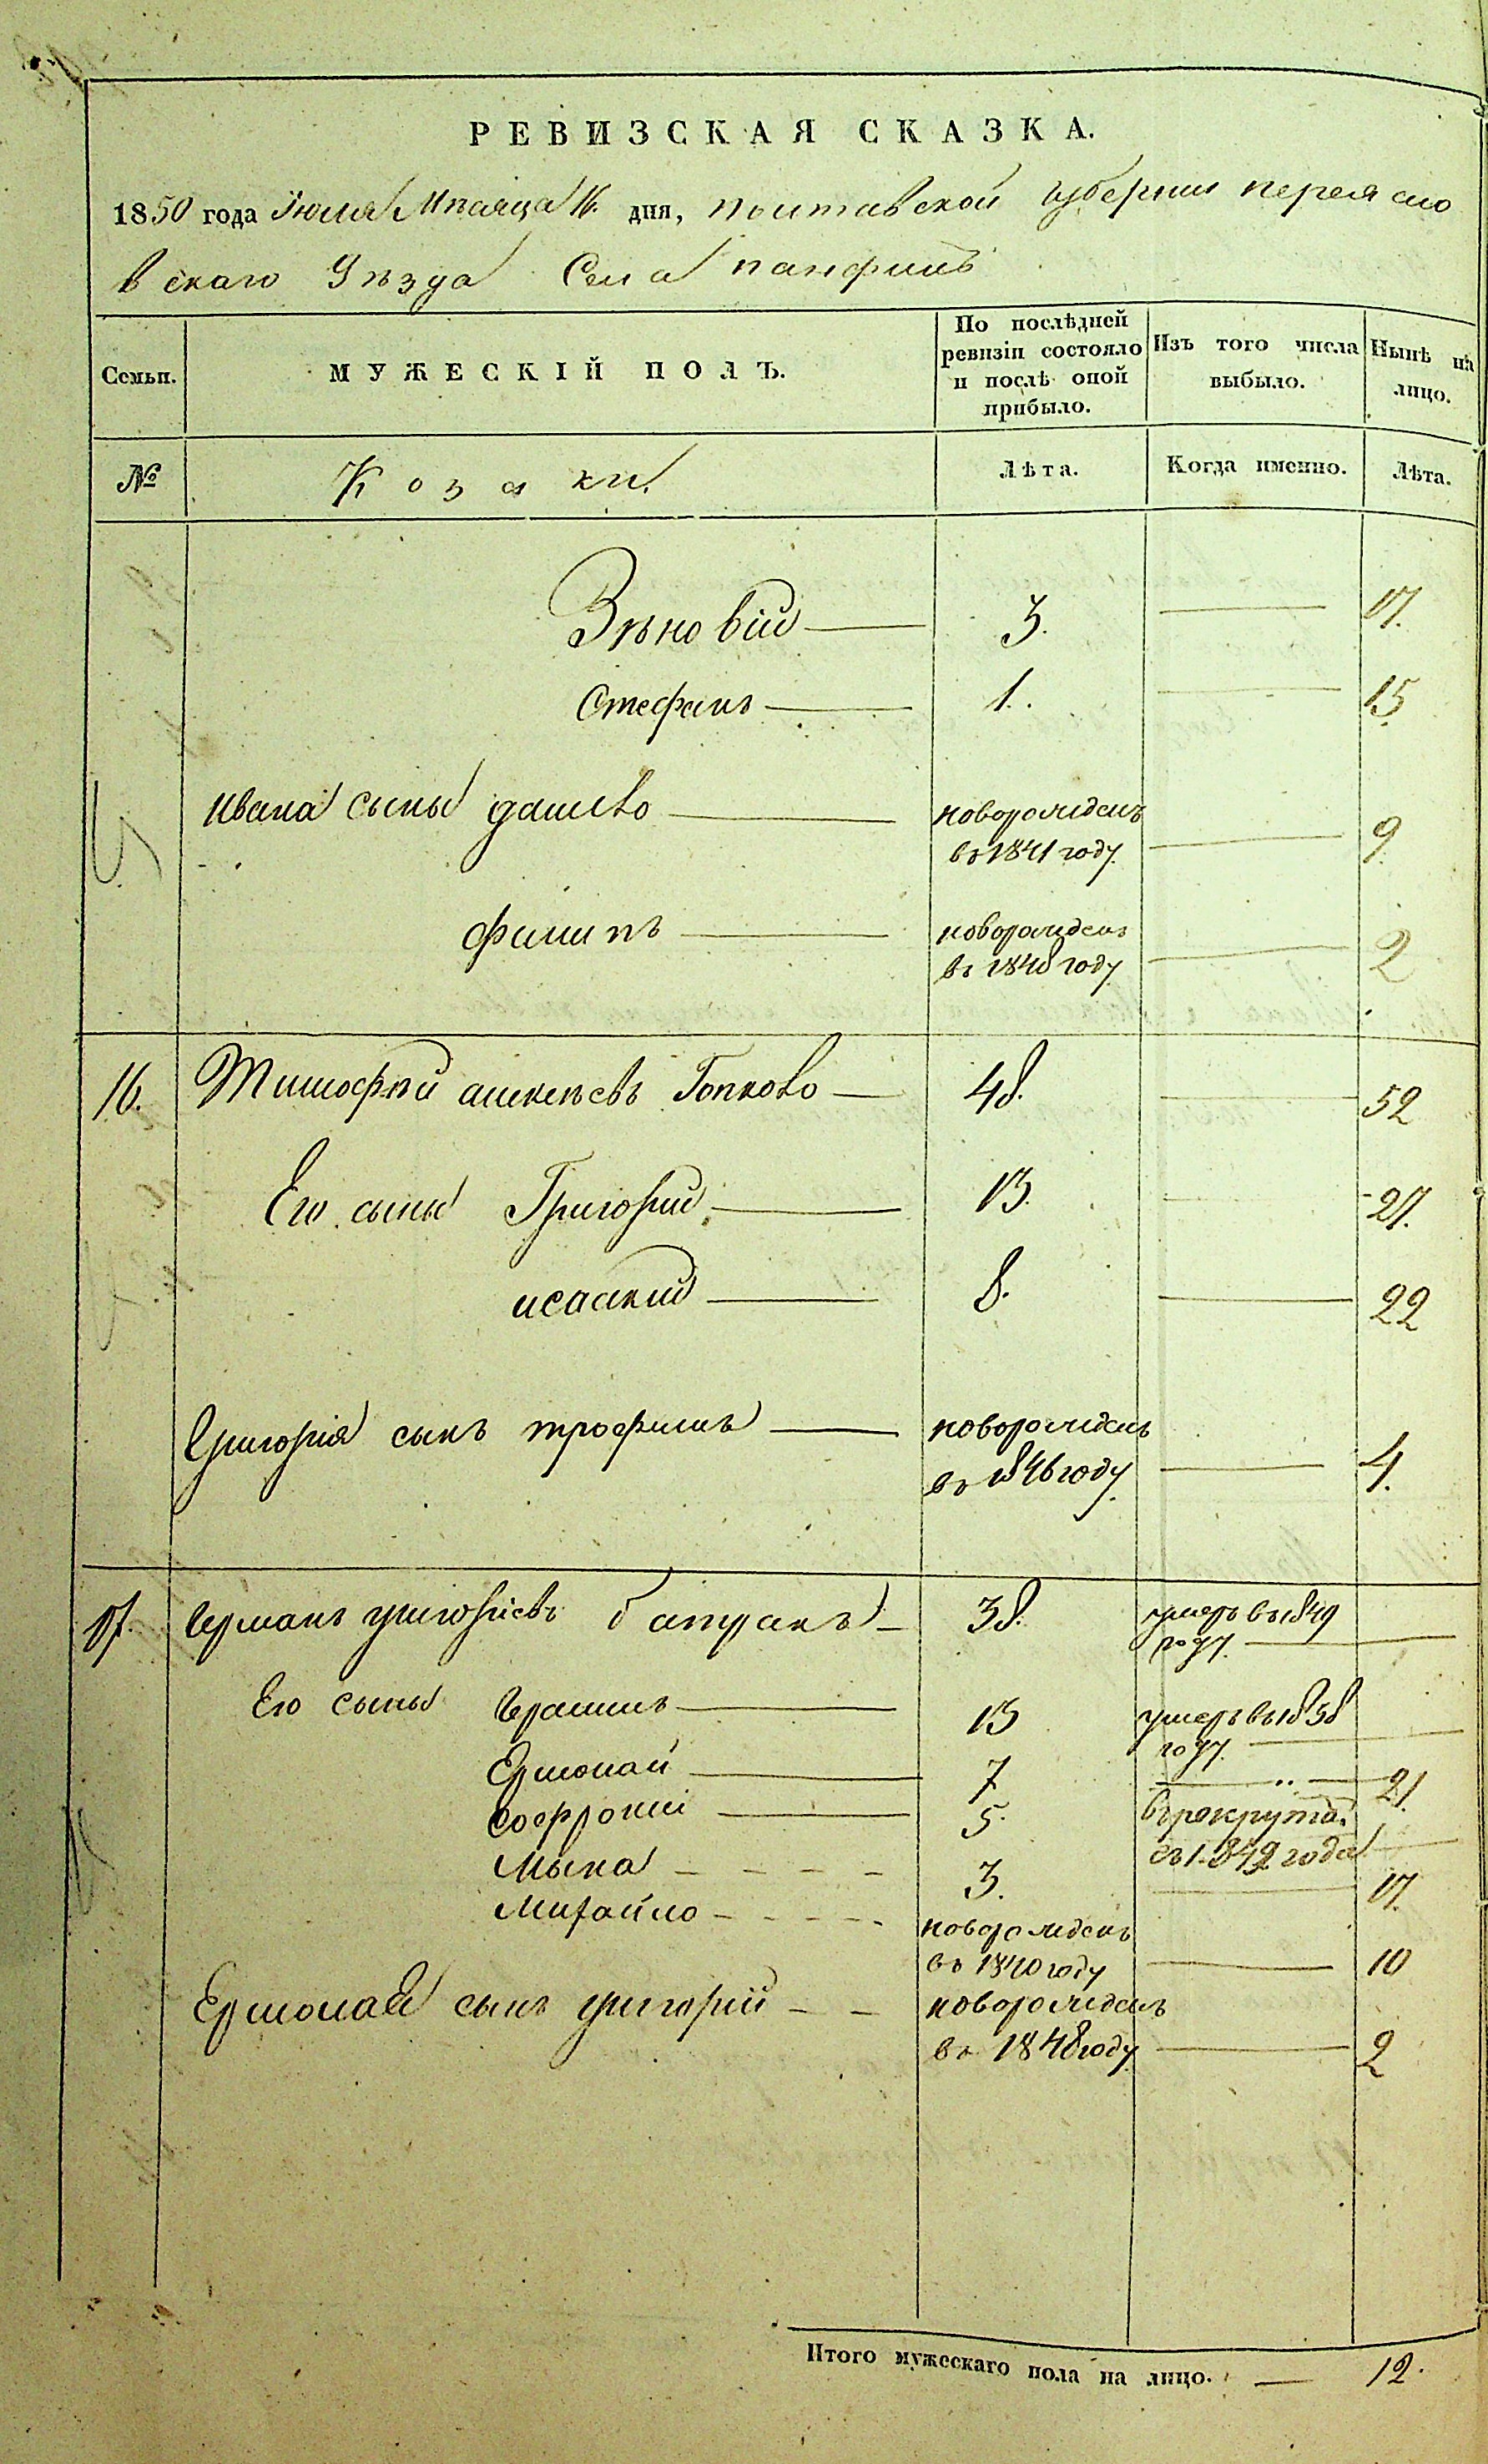 РЕВИЗСКАЯ СКАЗКА.
1850 года Июля Мѣсяца 16. дня, полтавской губернии переясло
вскаго Уѣзда Села панфилъ
Семьи.
МУЖЕСКІЙ ПОЛЪ.
По послѣдней
ревизіи состояло
и послѣ оной
прибыло.
Изъ того числа
выбыло.
Нынѣ на
лицо.
№
Козаки.
Лѣта.
Когда именно.
Лѣта.
Зѣновій — 3. — 17.
Стефанъ — 1. — 15.
Ивана сыны данило — новорожденъ
въ 1841 году. — 9.
филипъ — новорожденъ
въ 1848 году. — 2
16. Тимофѣй алексѣевъ Гопкало — 48. — 52
Его сыны Григорий — 13. — 27.
исаакий — 8. — 22
Григорія сынъ трофимъ — новорожденъ
въ 1846 году. — 4.
17. Германъ григорієвъ батракъ — 38. умеръ въ 1849
году. —
Его сыны Герасимъ — 13 умеръ въ 1838
году. —
Ермолай — 7 — 21.
софроний — 5. в рекрутах
съ 1842 года —
Мына — 3. — 17.
Михайло — новорожденъ
въ 1840 году — 10
Ермолая сынъ григорій — новорожденъ
въ 1848 году — 2
Итого мужескаго пола на лицо. — 12.